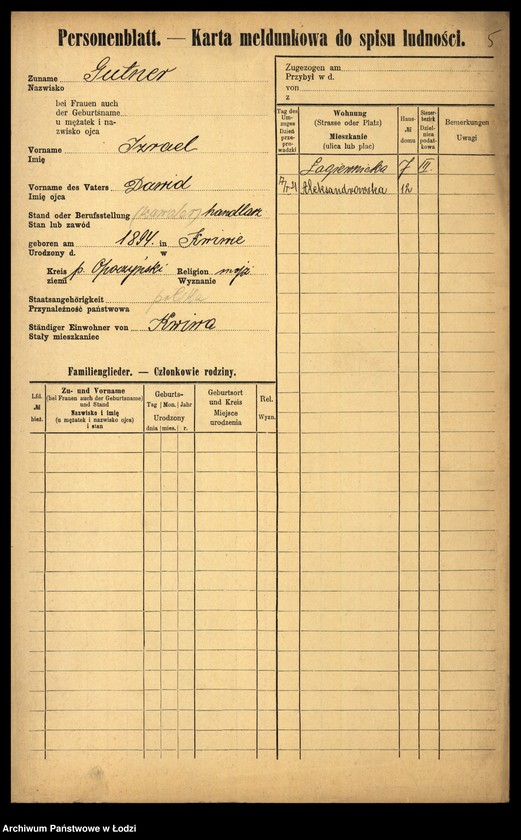 Personenblatt. — Karta meldunkowa do spisu ludności.
5
Zuname Gutner
Nazwisko
bei Frauen auch
der Geburtsname
u mężatek i na-
zwisko ojca
Vorname Izrael
Imię
Vorname des Vaters Dawid
Imię ojca
Stand oder Berufsstellung (kawaler) handlarz
Stan lub zawód
geboren am 1894. in Kniwie
Urodzony d. w
Kreis p. Opoczyński Religion mojż
ziemi Wyznanie
Staatsangehörigkeit polska
Przynależność państwowa
Ständiger Einwohner von
Stały mieszkaniec
Zugezogen am
Przybył w d.
von
z
Tag des Um-zuges
Dzień prze-pro-wadzki
Wohnung
(Strasse oder Platz)
Mieszkanie
(ulica lub plac)
Haus-
№
domu
Steuer-bezirk
Dziel-nica podat-kowa
Bemerkungen
Uwagi
Łagiewnicka 7 III.
Aleksandrowska 12
Familienglieder. — Członkowie rodziny.
Lfd.
№
bież.
Zu- und Vorname
(bei Frauen auch der Geburtsname)
und Stand
Nazwisko i imię
(u mężatek i nazwisko ojca)
i stan
Geburts-
Tag Mon. Jahr
Urodzony
dnia mies. r.
Geburtsort
und Kreis
Miejsce
urodzenia
Rel.
Wyzn.
Archiwum Państwowe w Łodzi